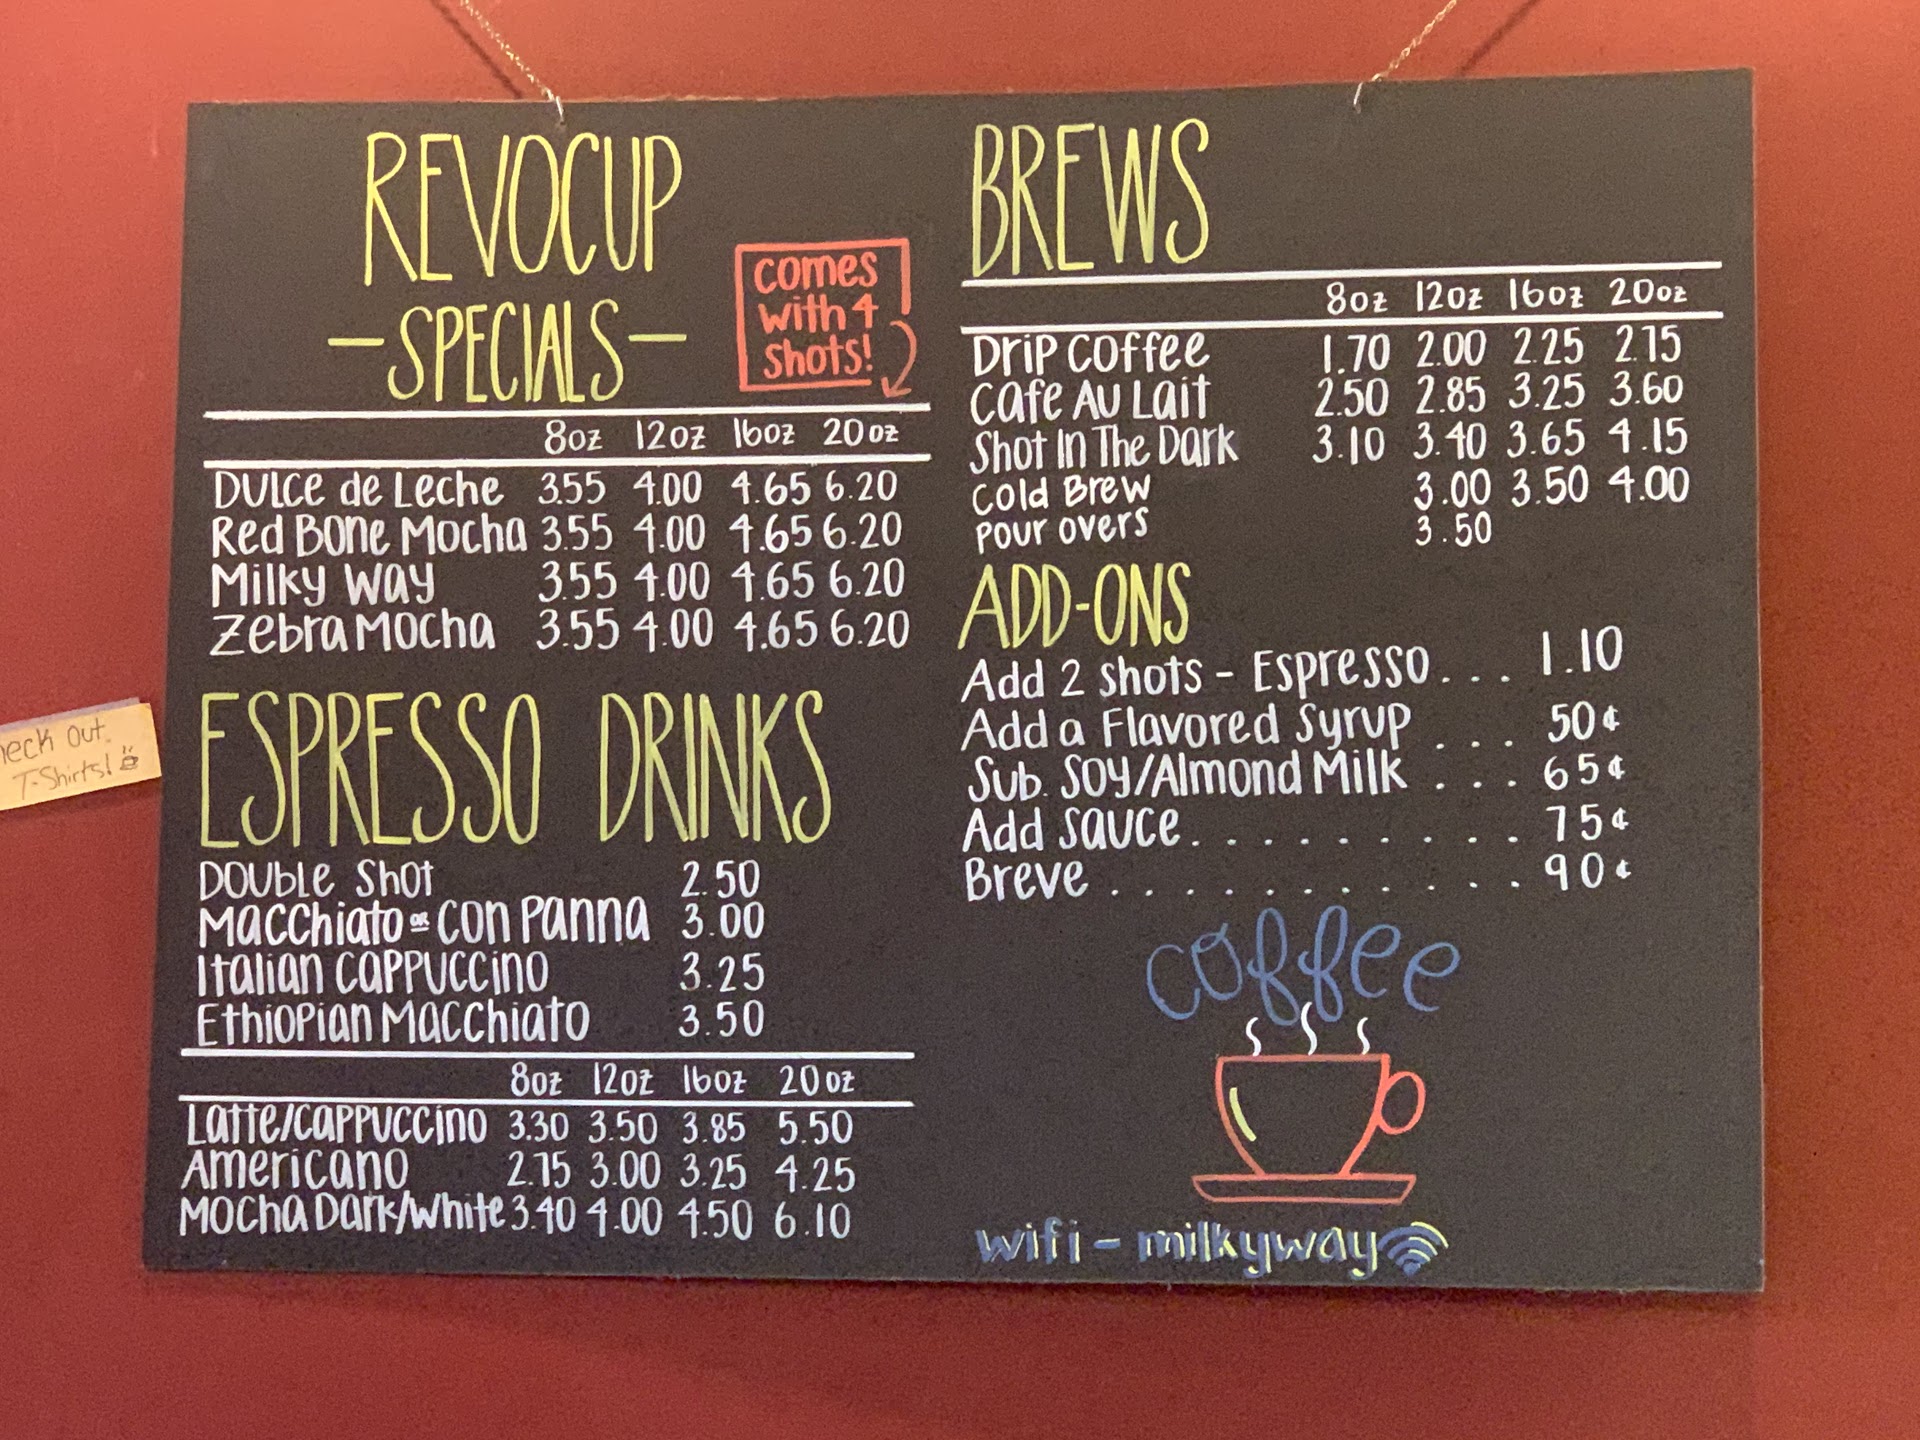 REVOCUP
-SPECIALS-
comes
with 4
shots!
8oz 12oz 16oz 20oz
Dulce de Leche 3.55 4.00 4.65 6.20
Red Bone Mocha 3.55 4.00 4.65 6.20
Milky Way 3.55 4.00 4.65 6.20
Zebra Mocha 3.55 4.00 4.65 6.20
ESPRESSO DRINKS
Double Shot 2.50
Macchiato or Con Panna 3.00
Italian Cappuccino 3.25
Ethiopian Macchiato 3.50
8oz 12oz 16oz 20oz
Latte/Cappuccino 3.30 3.50 3.85 5.50
Americano 2.75 3.00 3.25 4.25
Mocha Dark/White 3.40 4.00 4.50 6.10
BREWS
8oz 12oz 16oz 20oz
Drip Coffee 1.70 2.00 2.25 2.75
Cafe Au Lait 2.50 2.85 3.25 3.60
Shot In The Dark 3.10 3.40 3.65 4.15
Cold Brew 3.00 3.50 4.00
Pour overs 3.50
ADD-ONS
Add 2 shots - Espresso... 1.10
Add a Flavored Syrup ... 50¢
Sub. Soy/Almond Milk ... 65¢
Add sauce......... 75¢
Breve............ 90¢
coffee
wifi - milkyway
out
T-Shirts!